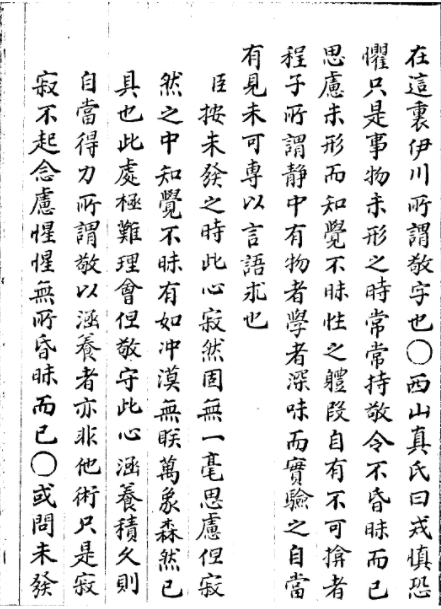 在這裏伊川所謂敬字也○西山真氏曰戒慎恐
懼只是事物未形之時常常持敬令不昏昧而已
思慮未形而知覺不昧性之軆段自有不可揜者
程子所謂静中有物者學者深味而實驗之自當
有見未可専以言語求也
臣按未發之時此心寂然固無一毫思慮但寂
然之中知覺不昧有如冲漠無眹萬象森然已
具也此處極難理會但敬守此心涵養積久則
自當得力所謂敬以涵養者亦非他術只是寂
寂不起念慮惺惺無所昏昧而已○或問未發